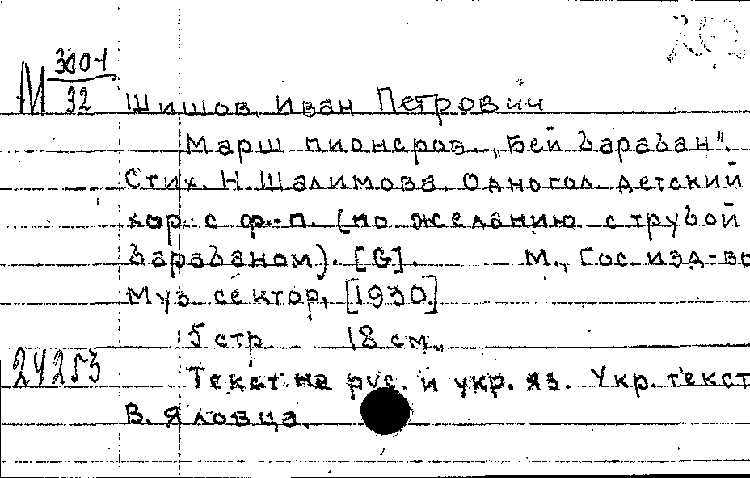 М 3001/32
Шишов, Иван Петрович
Марш пионеров „Бей барабан".
Стих. Н. Шалимова. Одногол. детский
хор с ф.-п. (по желанию с трубой
барабаном). [G]. М., Гос. изд-во
Муз. сектор, [1930.]
5 стр. 18 см.
24253
Текст на рус. и укр. яз. Укр. текст
В. Яловца.